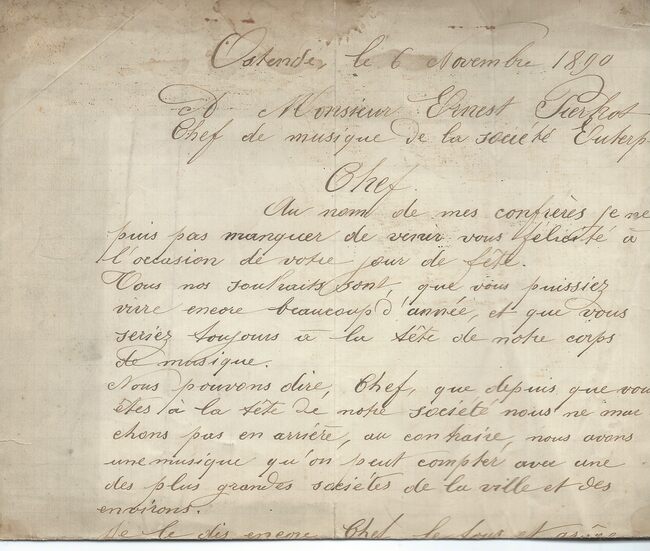 Ostende, le 6 Novembre 1890
A Monsieur Ernest
Chef de musique de la société Euterp
Chef
Au nom de mes confrères je ne
puis pas manquer de venir vous félicité à
l'occasion de votre jour de fête.
Tous nos souhaits sont, que vous puissiez
vivre encore beaucoup d'année, et que vous
seriez toujours à la tête de notre corps
de musique.
Nous pouvons dire, Chef, que depuis que vou
êtes à la tête de notre société nous ne mar
chons pas en arrière, au contraire, nous avons
une musique qu'on peut compter avec une
des plus grandes sociétés de la ville et des
environs.
Je le dis encore Chef le tous et